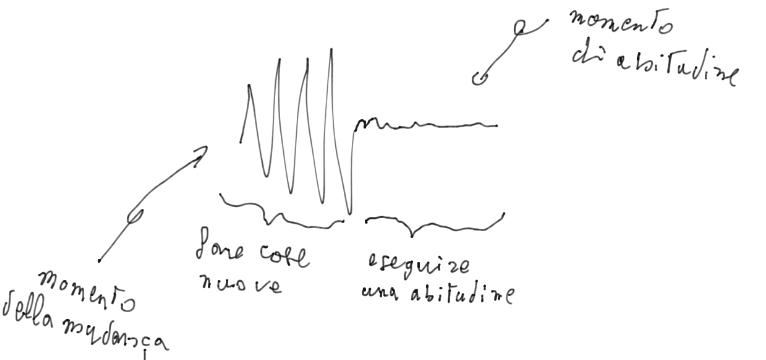 momento
di abitudine
fare cose
nuove
eseguire
una abitudine
momento
della